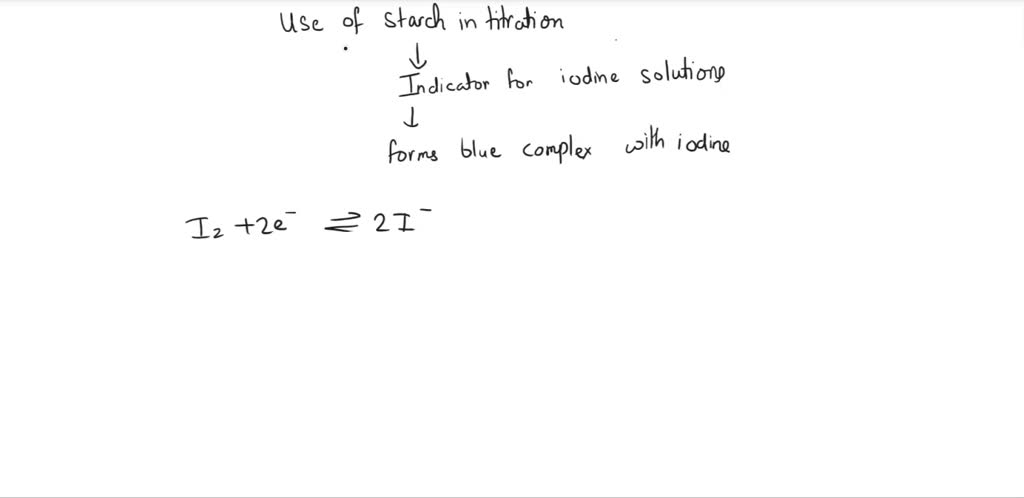 Use of starch in titration
↓
Indicator for iodine solutions
↓
forms blue complex with iodine
I₂ + 2e⁻ ⇌ 2I⁻